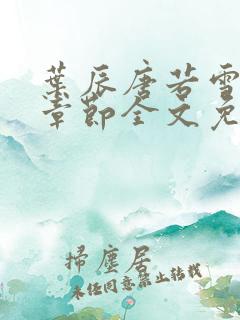 葉辰唐若雪
章節全文免
掃塵居
未经同意禁止转载